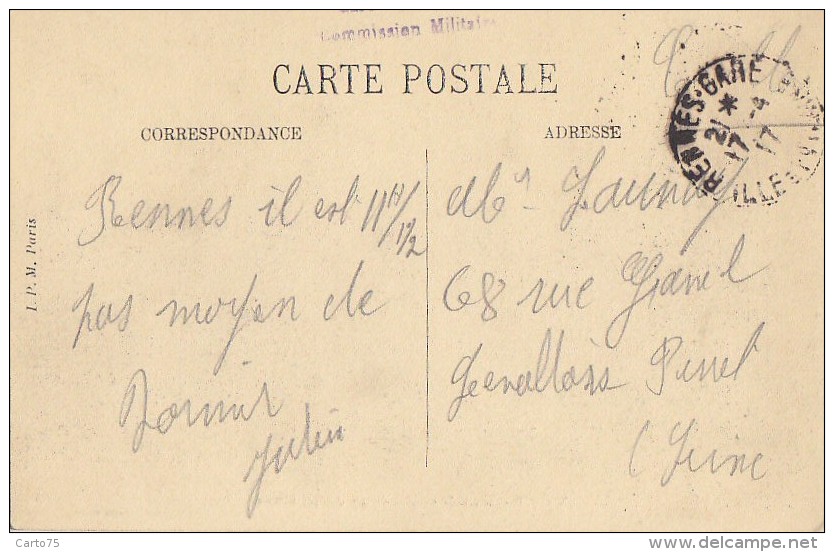 Commission Militaire
CARTE POSTALE
CORRESPONDANCE
ADRESSE
RENNES-GARE
ILLE
21 * 
17 -4
17
Rennes il est 11h 1/2
pas moyen de
Dormir
Julien
Mr Launay
68 rue Gravel
Levallois Perret
(Seine
I. P. M. Paris
Carto75
www.delcampe.net